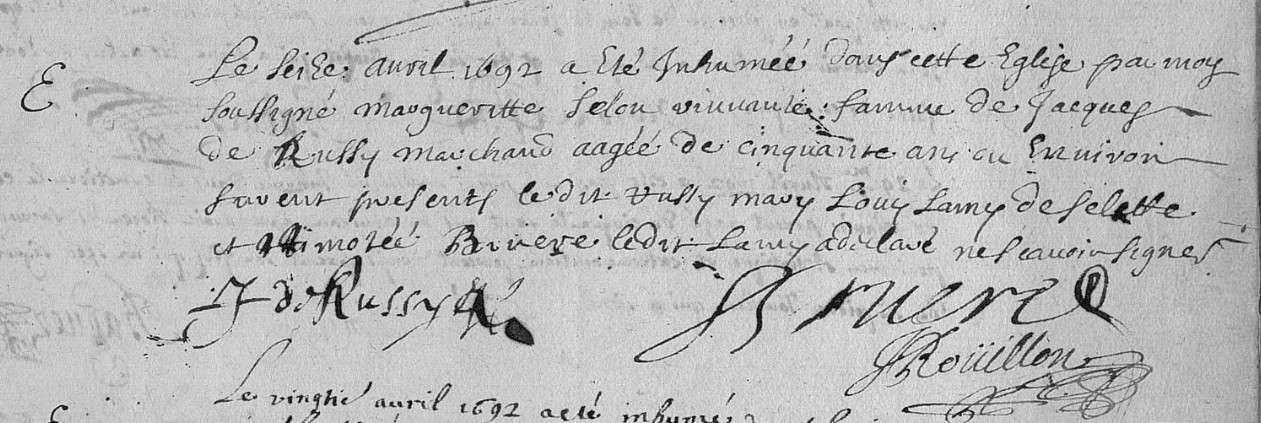 E
Le seize avril 1692 a eté Inhumée dans cette Eglise par moy
soussigné margueritte Selon vivvante famme de Jacques
de Russy marchand aagéé de cinquante ans ou Environ
furent presents le dit Russy mary Louy Lamy de selette
et Timotéé Bruere ledit Lamy a declaré ne scavoir signer
J de Russy
Bruere
Roüillon
Le vingtié avril 1692 a eté inhumé